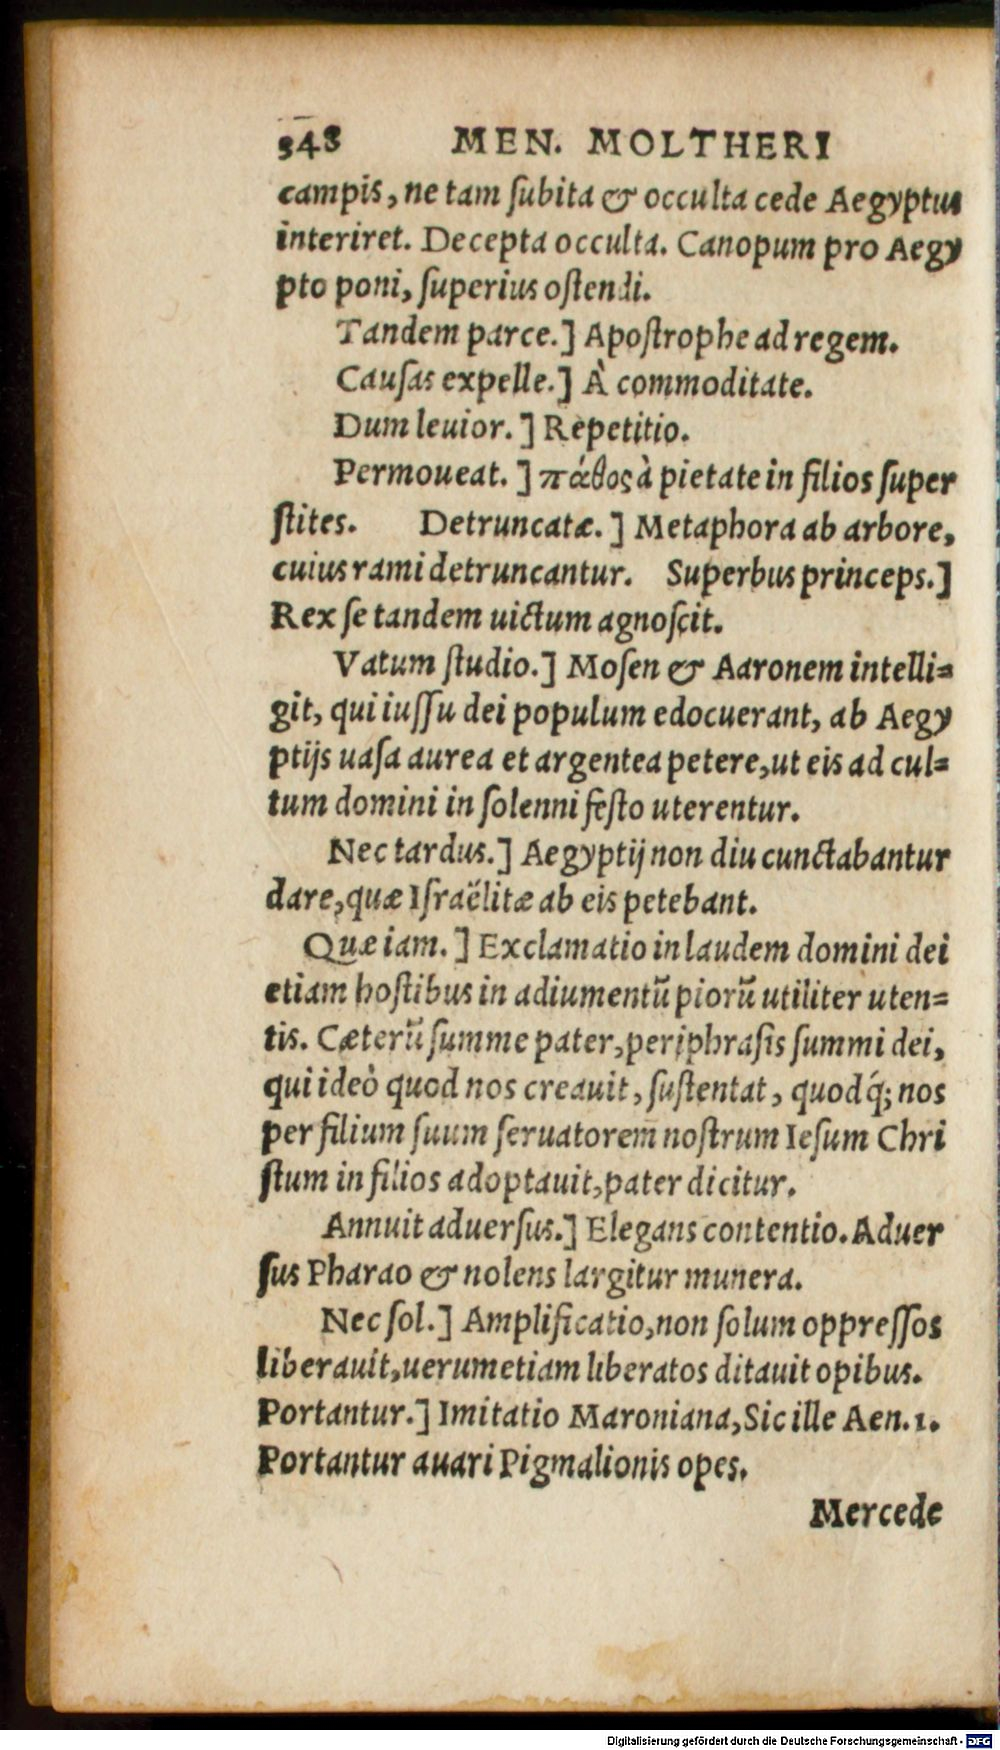 348 MEN. MOLTHERI
campis, ne tam ſubita & occulta cede Aegyptus
interiret. Decepta occulta. Canopum pro Aegy
pto poni, ſuperius oſtendi.
Tandem parce.] Apoſtrophe ad regem.
Cauſas expelle.] À commoditate.
Dum leuior.] Repetitio.
Permoueat.] πάθος à pietate in filios ſuper
ſtites. Detruncatæ.] Metaphora ab arbore,
cuius rami detruncantur. Superbus princeps.]
Rex ſe tandem uictum agnoſcit.
Vatum ſtudio.] Moſen & Aaronem intelli=
git, qui iuſſu dei populum edocuerant, ab Aegy
ptijs uaſa aurea et argentea petere, ut eis ad cul=
tum domini in ſolenni feſto uterentur.
Nec tardus.] Aegyptij non diu cunctabantur
dare, quæ Iſraëlitæ ab eis petebant.
Quæ iam.] Exclamatio in laudem domini dei
etiam hoſtibus in adiumentũ piorũ utiliter uten=
tis. Cæterũ ſumme pater, periphraſis ſummi dei,
qui ideò quod nos creauit, ſuſtentat, quodq́; nos
per filium ſuum ſeruatorem noſtrum Ieſum Chri
ſtum in filios adoptauit, pater dicitur.
Annuit aduerſus.] Elegans contentio. Aduer
ſus Pharao & nolens largitur munera.
Nec ſol.] Amplificatio, non ſolum oppreſſos
liberauit, uerumetiam liberatos ditauit opibus.
Portantur.] Imitatio Maroniana, Sic ille Aen. 1.
Portantur auari Pigmalionis opes.
Mercede
Digitalisierung gefördert durch die Deutsche Forschungsgemeinschaft - DFG